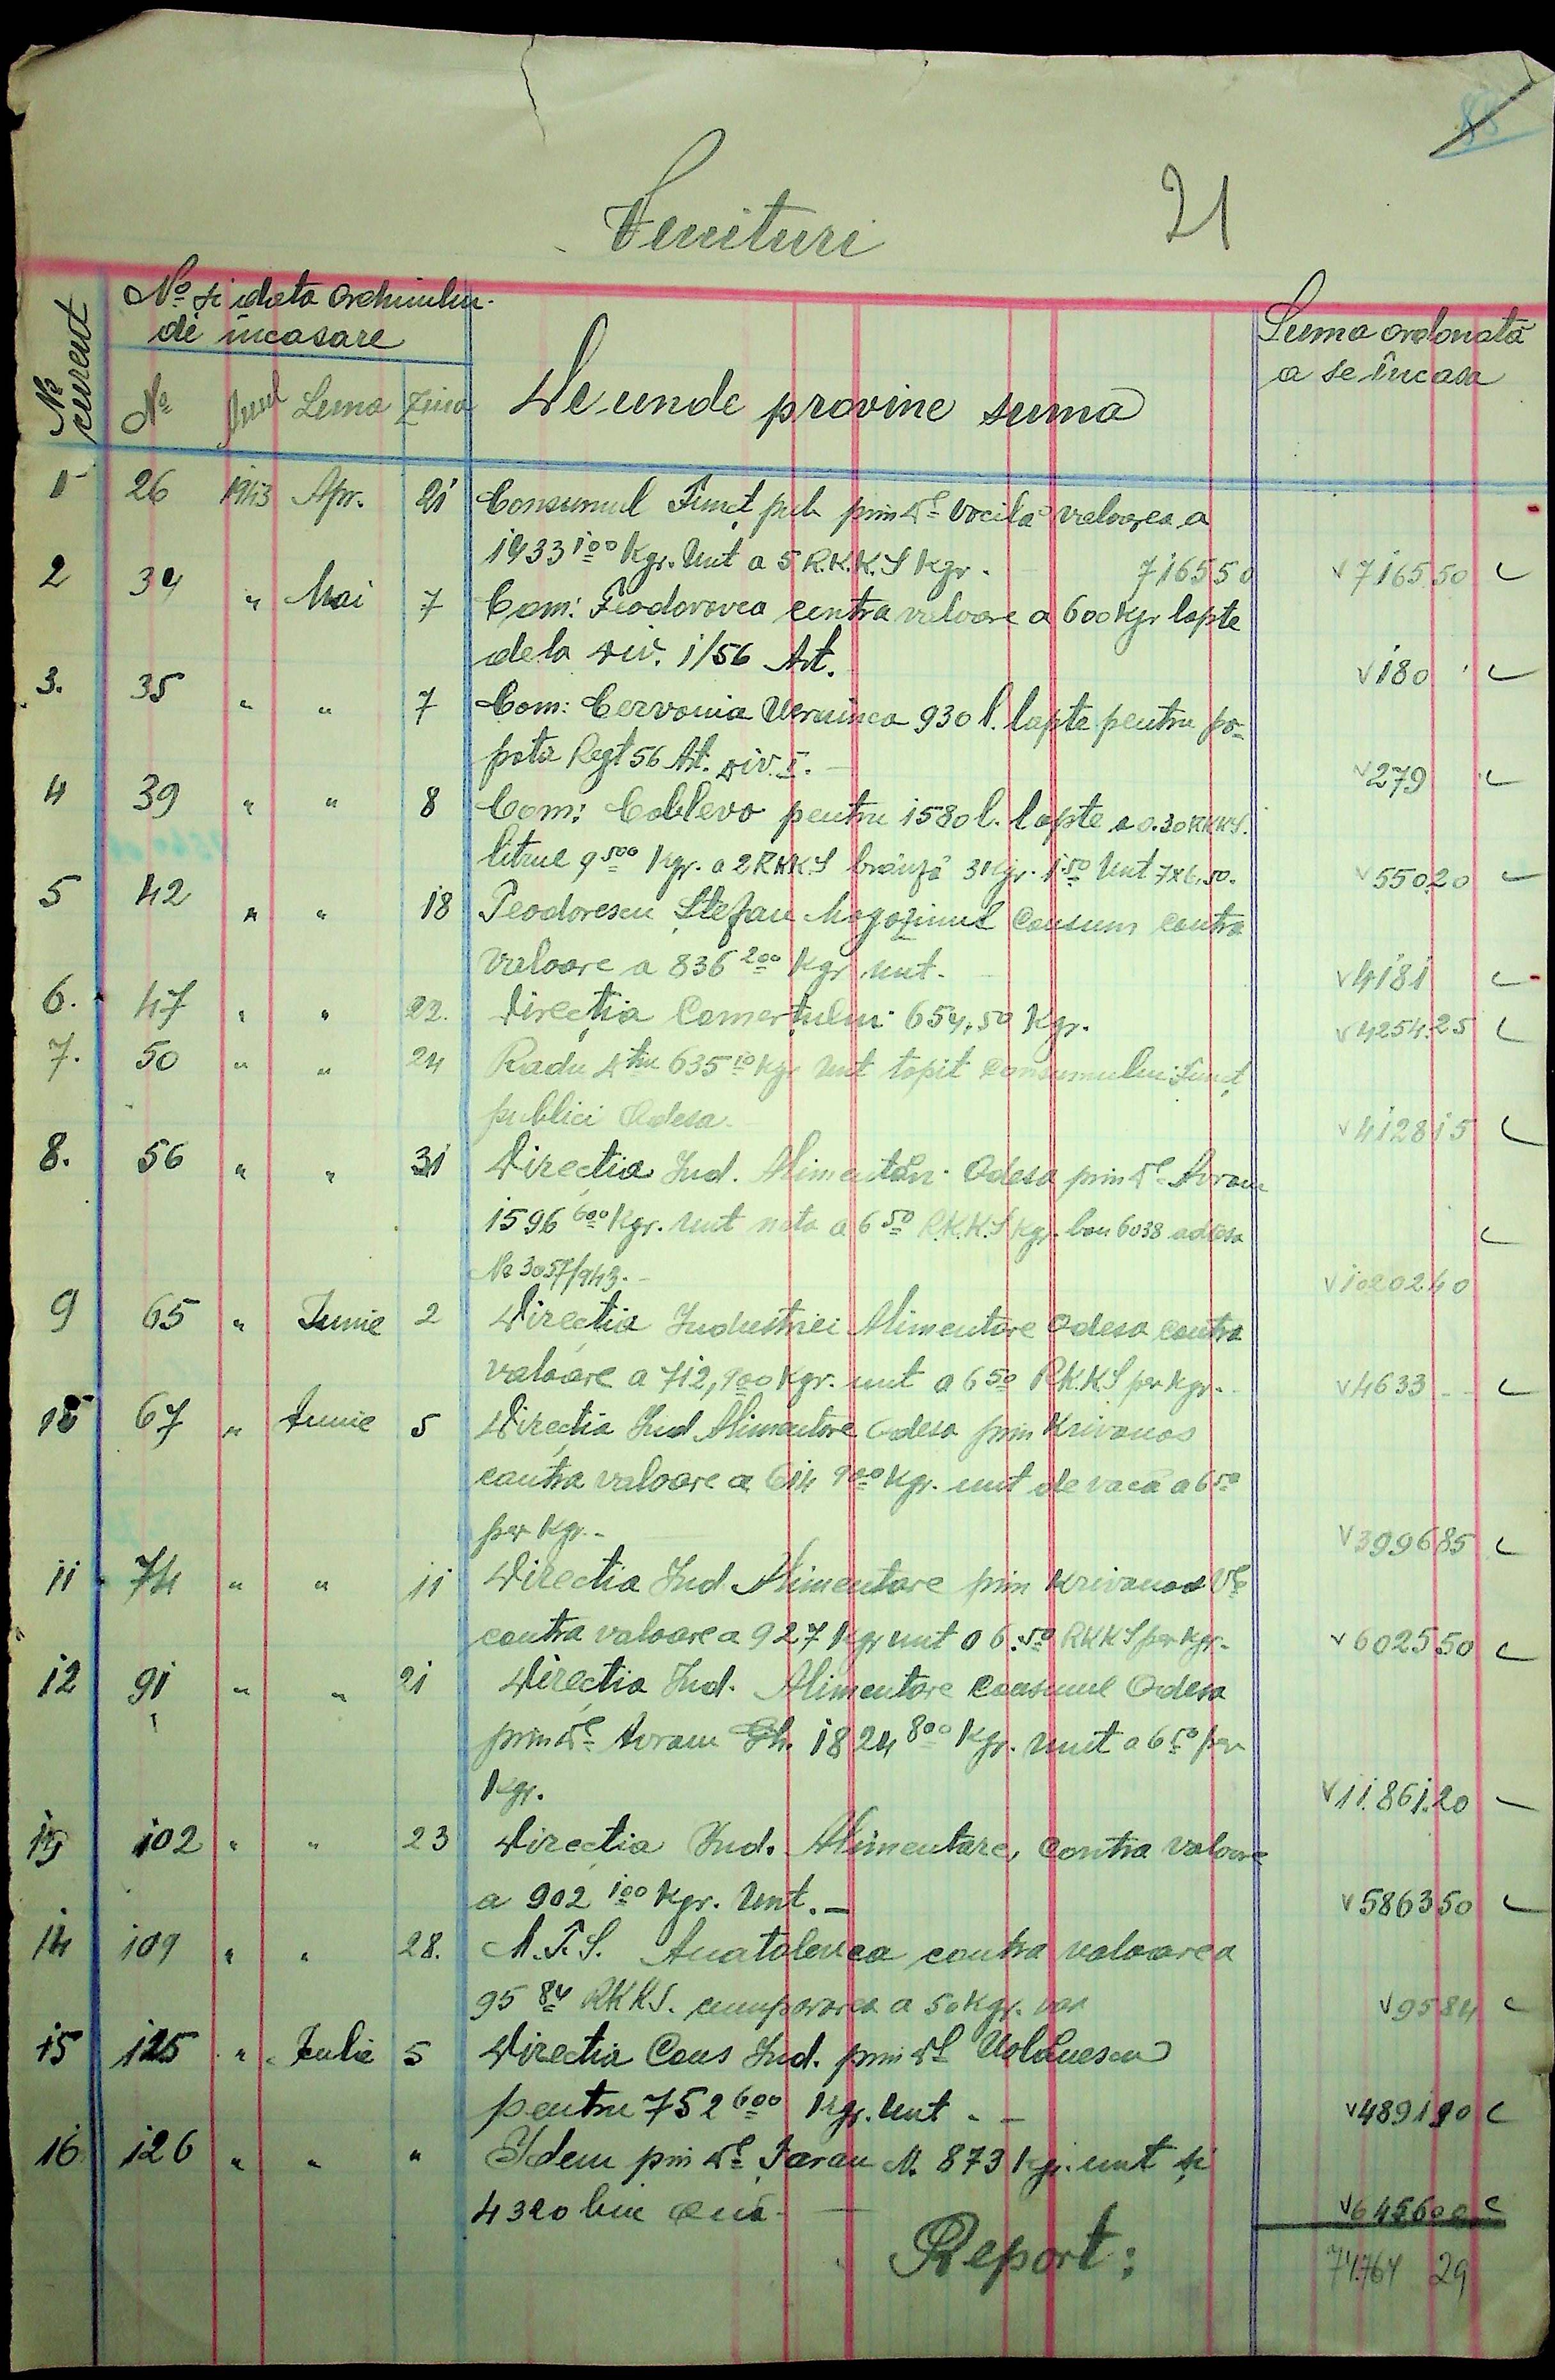 88
21
Venituri
No curent
No și data ordinului
de încasare
De unde provine suma
Suma ordonată
a se încasa
No Anul Luna Ziua
1 26 1943 Apr. 21 Consumul Funcț. pub. prin Dl valoarea a
1433 100 Kgr. Unt a 5 R.K.K.S Kgr. - 716550 716550
2 34 " Mai 7 Com: Feodorovca contra valoare a 600 Kgr lapte
dela Div. 1/56 Art. 180
3. 35 " " 7 Com: Cervonia Ucrainca 930 l. lapte pentru po-
pota Regt 56 Art. Div. I. - 279
4 39 " " 8 Com: Coblevo pentru 1580 l. lapte a 0.30 RKKS.
litrul 9 500 Kgr. a 2 RKKS brânză 31 Kgr. 1.50 Unt 7x6,50. 55020
5 42 " " 18 Teodorescu Ștefan Magazinul Consum contra
valoare a 836 200 Kgr unt. 4181
6. 47 " " 22. Direcția Comerțului 654,50 Kgr. 4254.25
7. 50 " " 24 Radu Dtru 635 10 Kgr Unt topit Consumului Funcț
publici Odesa. 412815
8. 56 " " 31 Direcția Ind. Alimentări Odesa prin Dl Avram
1596 600 Kgr. Unt nota a 6 50 R.K.K.S Kgr. bon 6038 adresa
No 3057/943. - 1020240
9 65 " Iunie 2 Direcția Industriei Alimentare Odesa contra
valoare a 712,900 Kgr. unt a 6 50 RKKS per Kgr. 4633
10 67 " Iunie 5 Direcția Ind Alimentare Odesa prin Krivonos
contra valoare a 614 900 Kgr. unt de vacă a 6 50
per Kgr. - 399685
11 74 " " 11 Direcția Ind Alimentare prin Krivonos
contra valoare a 927 Kgr unt a 6.50 RKKS per Kgr. 602550
12 91 " " 21 Direcția Ind. Alimentare Consumul Odesa
prin Dl Avram Gh. 1824 800 Kgr. Unt a 6 50 per
Kgr. 11.861.20
13 102 " " 23 Direcția Ind. Alimentare, contra valoare
a 902 100 Kgr. Unt. - 586350
14 109 " " 28. M.T.S. Anatolevca contra valoarea
95 84 RKKS. cumpararea a 50 Kgr. var 9584
15 125 " Iulie 5 Direcția Cons Ind. prin Dl
pentru 752 600 Kgr. Unt - 489190
16 126 " " " Idem prin Dl Țaran M. 873 Kgr. unt și
4320 buc ouă -
Report: 74.764 29